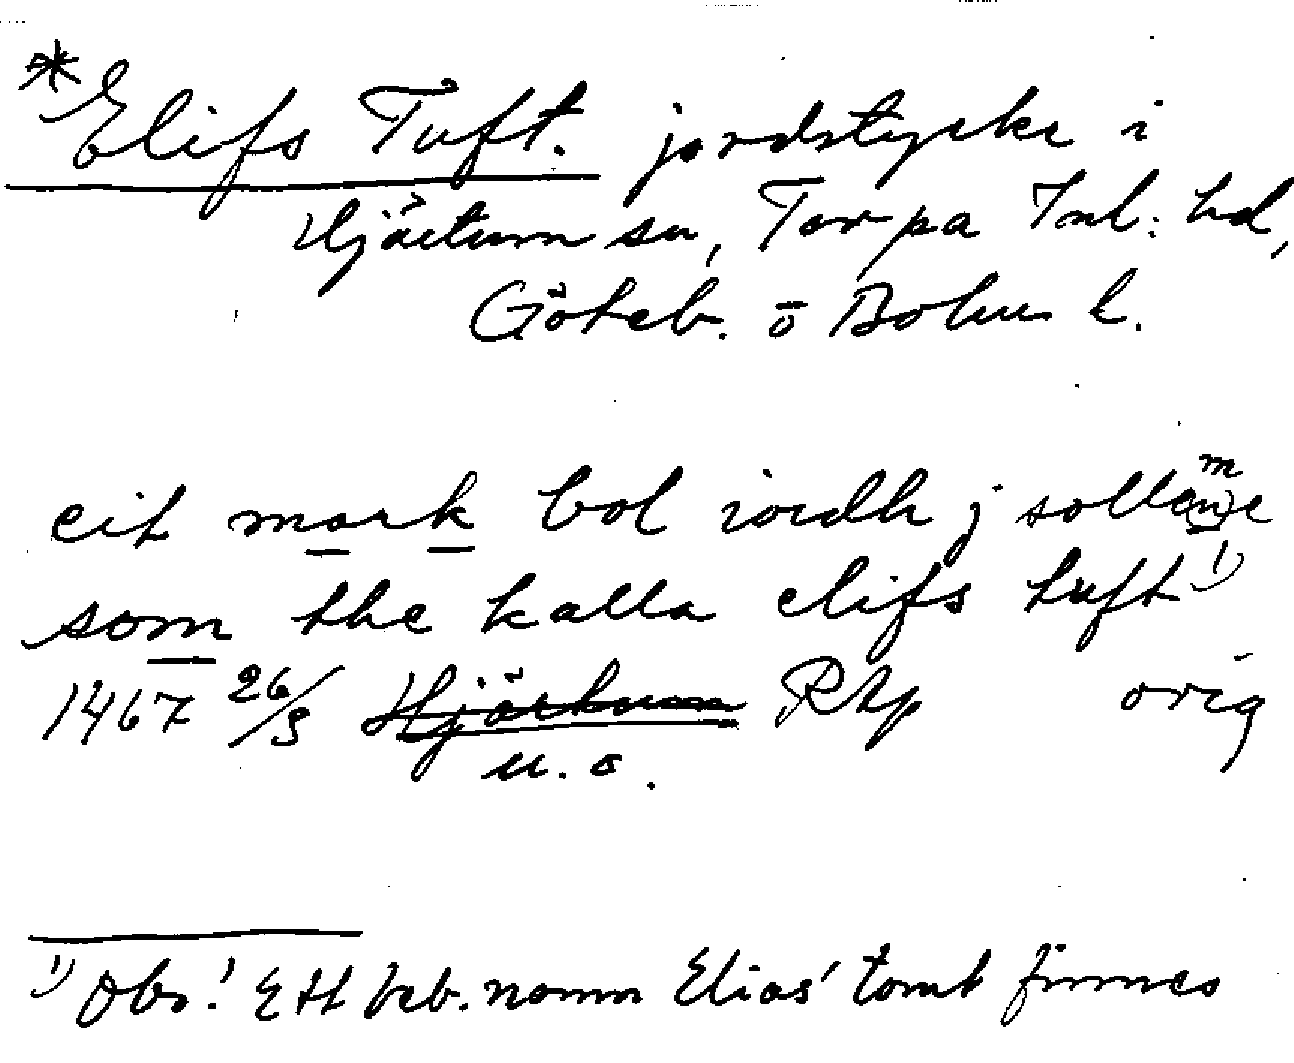 *Elifs Tuft. jordstycke i
Hjärtum sn, Torpa Inl: hd,
Göteb. o Bohus l.
eit mark bol iordh j sollem(n)e
som the kalla elifs tuft 1)
1467 26/3 Hjärtum RAp orig
u. o.
1) Obs! Ett beb. namn Elias' tomt finnes